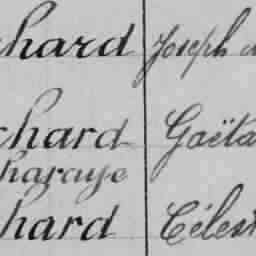 chard Joseph
chard Gaëta
haraye
hard Célest